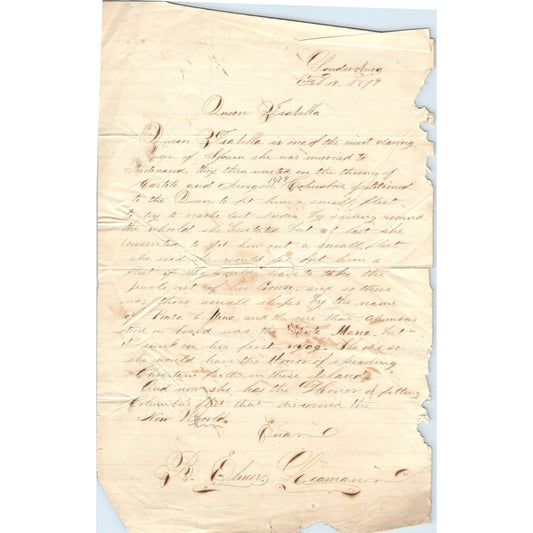 Feb 18, 1879
Queen Isabella
Queen Isabella is one of the most
of Spain she was married to
Ferdinand, they then united on the throne of
Castile and Columbus petitioned
to the Queen to fit him a small fleet
to try to reach East India by sailing around
the world she hesitated but at last she
consented to fit him out a small fleet
she said she could fit him a
fleet if they would have to take the
pearls out of her Crown. and so there
was three small ships by the name
of Pinta & Nina and the one that Columbus
stood on board was the Santa Maria, but
it sunk on his first She did so
she would have the Honor of spreading
Christian faith in these Islands
And now she has the Honor of fitting
Columbus fleet that discovered the
New World
R. Elmer Leaman